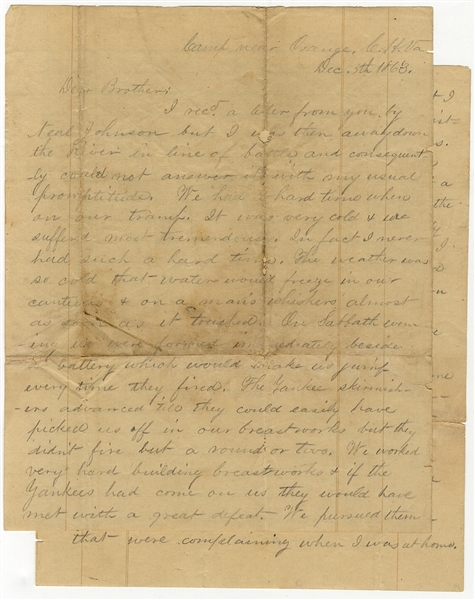 Camp near Orange, C.H. Va
Dec. 5th 1863.
Dear Brother:
I recd. a letter from you, by
Neal Johnson but I was then away down
the River in line of battle and consequent
ly could not answer it with my usual
promptitude. We had a hard time when
on our tramp. It was very cold & we
sufferd most tremendously. In fact I never
had such a hard time. The weather was
so cold that water would freeze in our
canteens & on a mans whiskers almost
as soon as it touched. On Sabbath even
ing we were formed immediately beside
a battery which would make us jump
every time they fired. The Yankee skirmish-
ers advanced till they could easily have
picked us off in our breastworks but they
didn't fire but a round or two. We worked
very hard building breastworks & if the
Yankees had come on us they would have
met with a great defeat. We pursued them
that were complaining when I was at home.